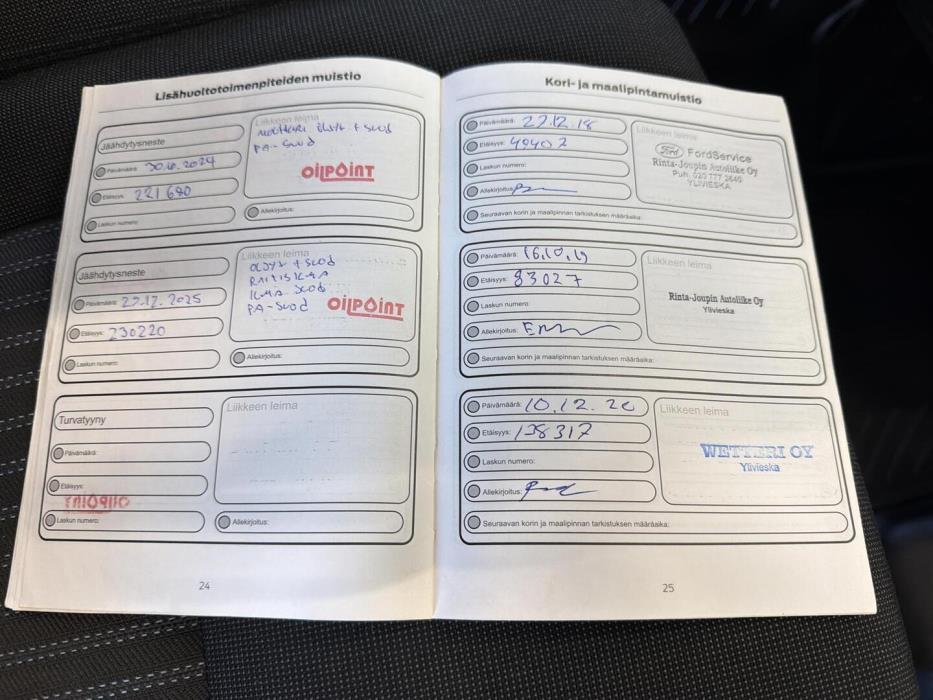 Lisähuoltotoimenpiteiden muistio
Jäähdytysneste
Päivämäärä: 30.6.2024
Etäisyys: 221 680
Laskun numero:
Liikkeen leima
ÖLJYT + SUOD
PA-SUOD
OILPOINT
Allekirjoitus:
Jäähdytysneste
Päivämäärä: 22.12.2025
Etäisyys: 230220
Laskun numero:
Liikkeen leima
ÖLJYT + SUOD
RAITISILMA
ILMA SUOD
PA-SUOD
OILPOINT
Allekirjoitus:
Turvatyyny
Päivämäärä:
Etäisyys:
OILPOINT
Laskun numero:
Liikkeen leima
Allekirjoitus:
24
Kori- ja maalipintamuistio
Päivämäärä: 27.12.18
Etäisyys: 49402
Laskun numero:
Allekirjoitus:
Liikkeen leima
Ford FordService
Rinta-Joupin Autoliike Oy
Puh. 020 777 2640
YLIVIESKA
Seuraavan korin ja maalipinnan tarkistuksen määräaika:
Päivämäärä: 16.10.19
Etäisyys: 83027
Laskun numero:
Allekirjoitus:
Liikkeen leima
Rinta-Joupin Autoliike Oy
Ylivieska
Seuraavan korin ja maalipinnan tarkistuksen määräaika:
Päivämäärä: 10.12.20
Etäisyys: 138317
Laskun numero:
Allekirjoitus:
Liikkeen leima
WETTERI OY
Ylivieska
Seuraavan korin ja maalipinnan tarkistuksen määräaika:
25